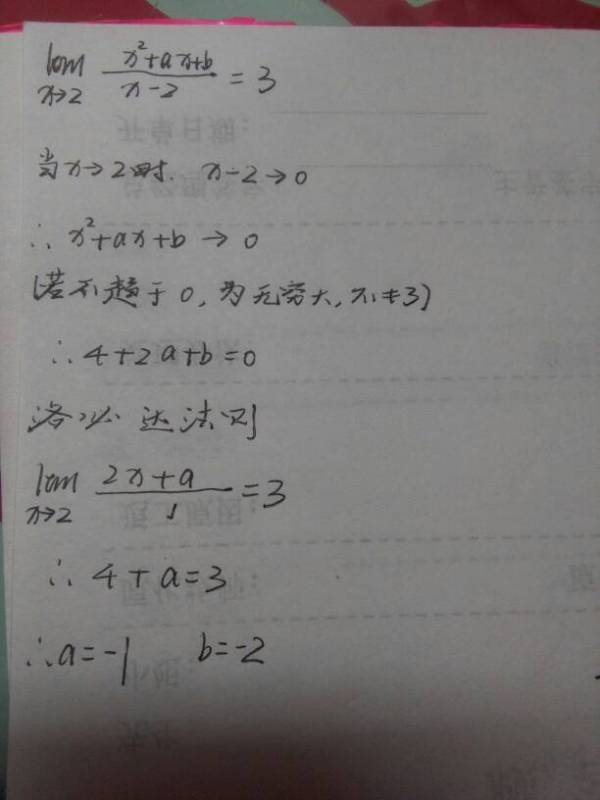 lim x→2 (x²+ax+b)/(x-2) = 3
当x→2时. x-2→0
∴ x²+ax+b → 0
(若不趋于0, 为无穷大, 不=3)
∴ 4+2a+b=0
洛必达法则
lim x→2 (2x+a)/1 = 3
∴ 4+a=3
∴ a=-1 b=-2